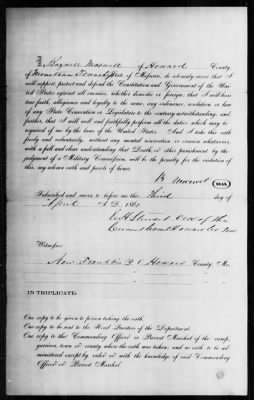 I, Bagwell Maxwell of Howard County,
of State of Missouri, do solemnly swear that I
will support, protect and defend the Constitution and Government of the Uni-
ted States against all enemies, whether domestic or foreign; that I will bear
true faith, allegiance and loyalty to the same, any ordinance, resolution or law
of any State Convention or Legislature to the contrary notwithstanding; and
further, that I will well and faithfully perform all the duties which may be
required of me by the laws of the United States. And I take this oath
freely and voluntarily, without any mental reservation or evasion whatsoever,
with a full and clear understanding that Death, or other punishment by the
judgment of a Military Commission, will be the penalty for the violation of
this, my solemn oath and parole of honor.
B. Maxwell SEAL
Subscribed and sworn to before me this Third day of
April A.D. 186
C H Stewart Clk of the
Circuit Court Howard Co Mo
Witnesses
New Franklin P. O. Howard County, Mo.
IN TRIPLICATE.
One copy to be given to person taking the oath.
One copy to be sent to the Head Quarters of the Department.
One copy to the Commanding Officer or Provost Marshal of the camp,
garrison, town or county where the oath was taken; and no oath to be ad-
ministered except by order or with the knowledge of said Commanding
Officer or Provost Marshal.